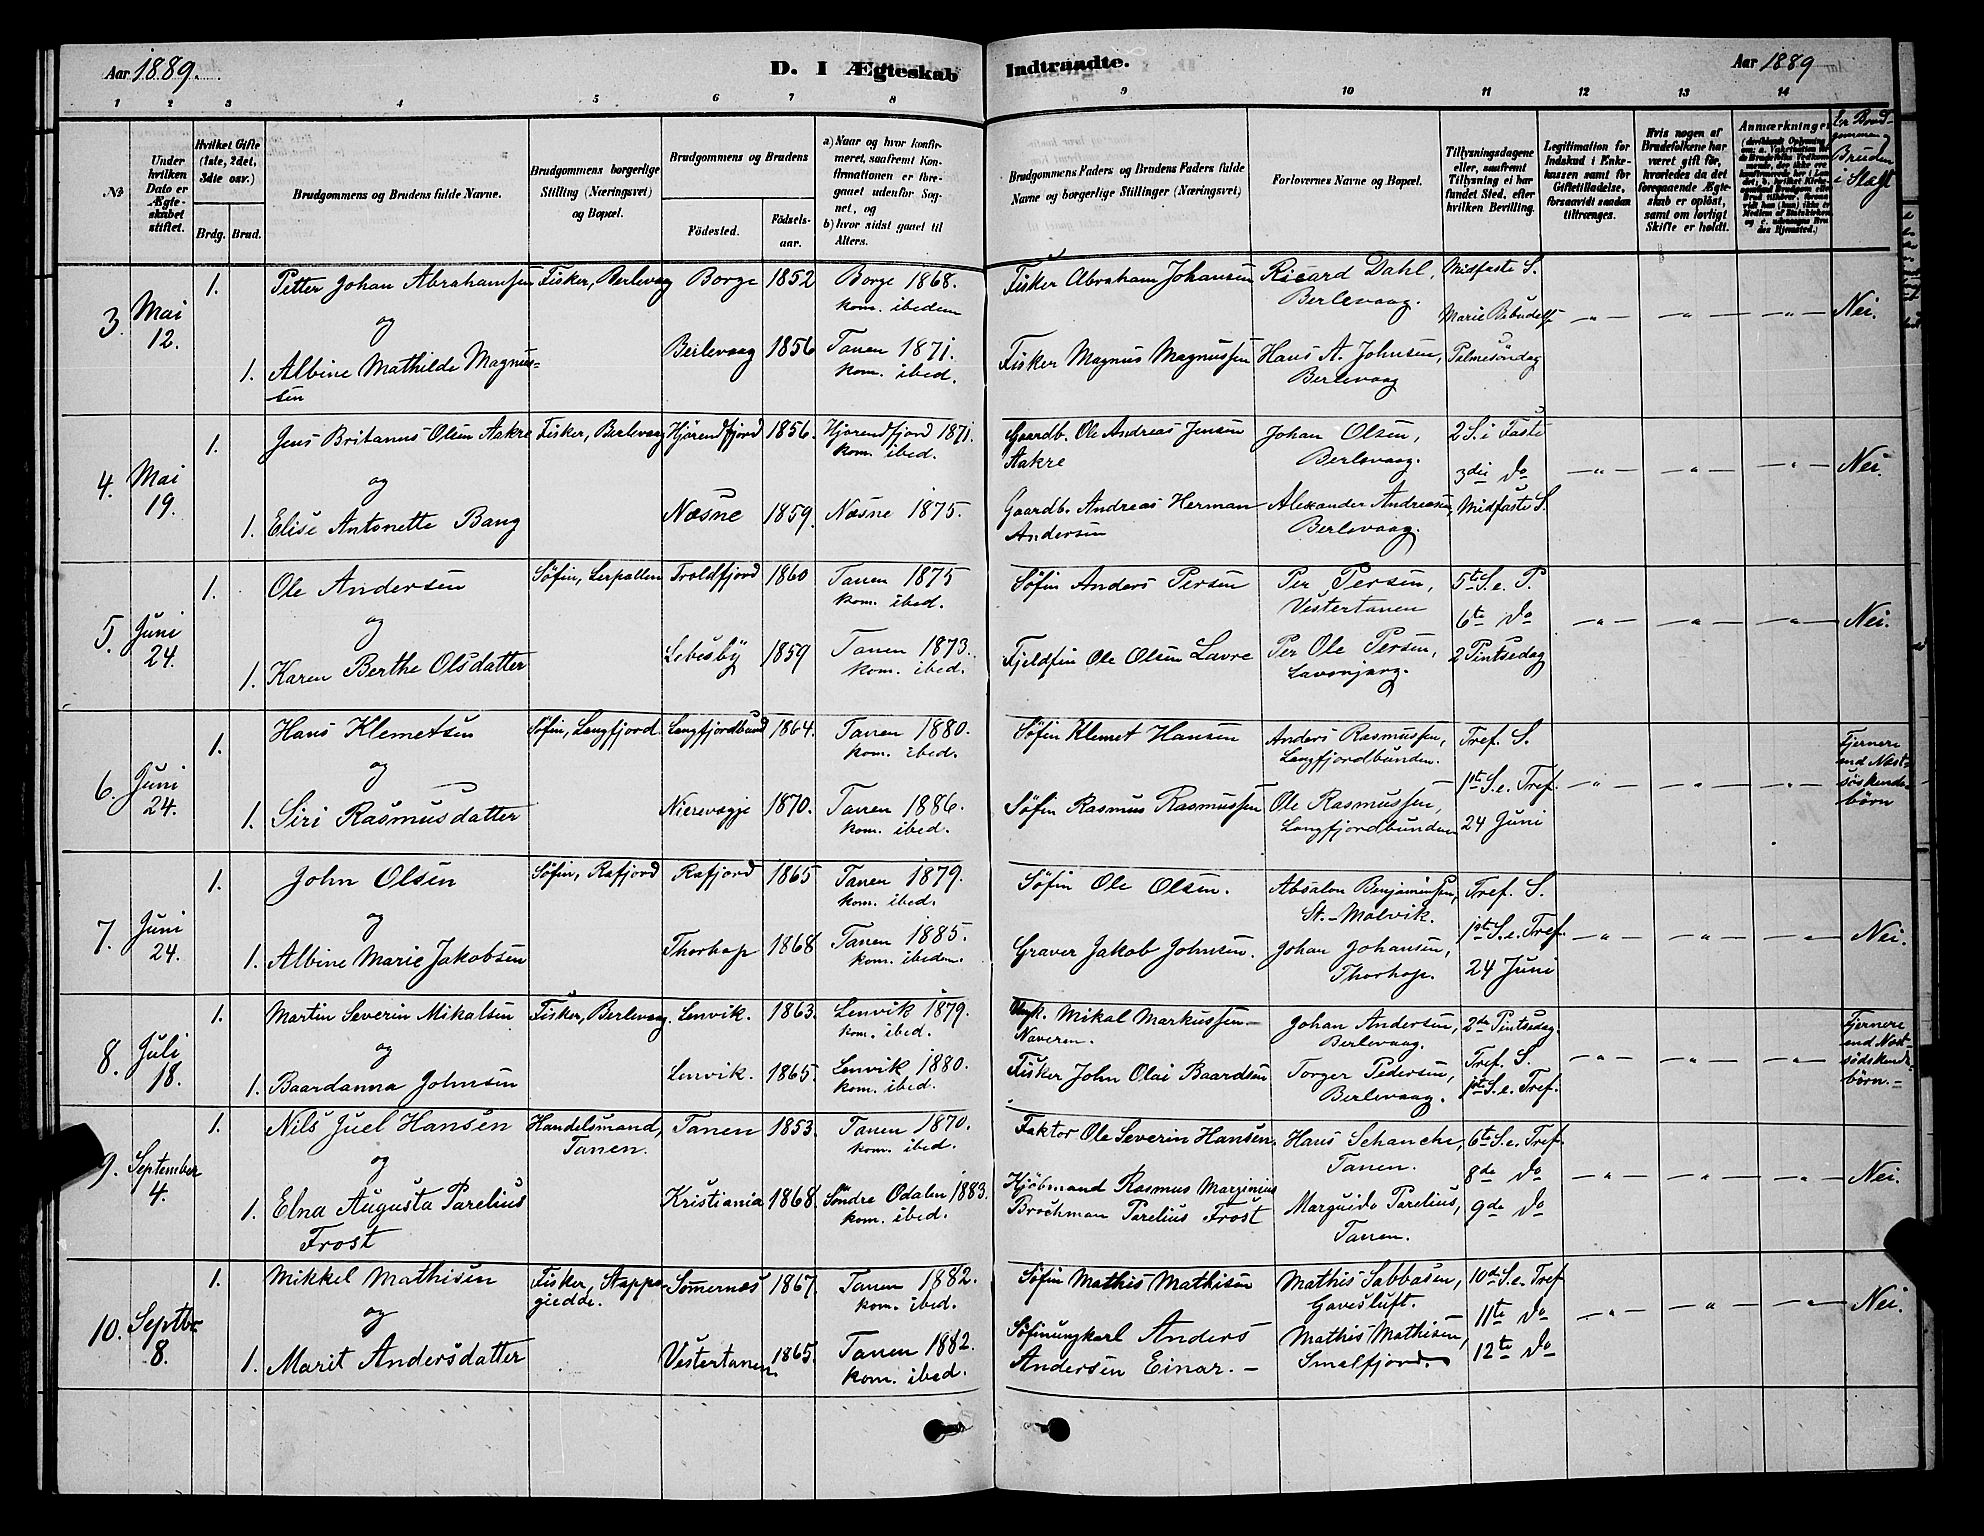 Aar 1889.
D. I Ægteskab Indtraadte.
Aar 1889
1 2 3 4 5 6 7 8 9 10 11 12 13 14
No
Under hvilken Dato er Ægteskabet stiftet.
Hvilket Gifte (1ste, 2det, 3die osv.)
Brdg. Brud.
Brudgommens og Brudens fulde Navne.
Brudgommens borgerlige Stilling (Næringsvei) og Bopæl.
Brudgommens og Brudens
Fødested.
Fødselsaar.
a) Naar og hvor konfirmeret, saafremt Konfirmationen er foregaaet udenfor Sognet, og
b) hvor sidst gaaet til Alters.
Brudgommens Faders og Brudens Faders fulde Navne og borgerlige Stillinger (Næringsvei)
Forlovernes Navne og Bopæl.
Tillysningsdagene eller, saafremt Tillysning ei har fundet Sted, efter hvilken Bevilling.
Legitimation for Indskud i Enkekassen samt for Giftetilladelse, forsaavidt saadan tiltrænges.
Hvis nogen af Brudefolkene har været gift før, hvorledes da det foregaaende Ægteskab er opløst, samt om lovligt Skifte er holdt.
Anmærkninger
Er Brudgommen og Bruden i Slægt
3. Mai 12.
1. Petter Johan Abrahamsen Fisker, Berlevaag Borge 1852 Borge 1868. kom. ibedem
og
1. Albine Mathilde Magnussen Berlevaag 1856 Tanen 1871. kom. ibed.
Fisker Abraham Johansen Ricard Dahl, Berlevaag. Midfaste S.
Marie Bebudelse
Fisker Magnus Magnussen Hans A. Johnsen, Berlevaag Palmesöndag
Nei.
4. Mai 19.
1. Jens Britanus Olsen Aakre Fisker, Berlevaag Hjörendfjord 1856. Hjörendfjord 1871. kom. ibed.
og
1. Elise Antonette Bang Næsne 1859. Næsne 1875.
Gaardb. Ole Andreas Jensen Aakre Johan Olsen, Berlevaag. 2 S. i Faste
3die do
Gaardb. Andreas Herman Andersen Alexander Andreasen, Berlevaag. Midfaste S.
Nei.
5. Juni 24.
1. Ole Andersen Söfin, Lerpollen Troldfjord 1860 Tanen 1875 kom. ibed.
og
1. Karen Berthe Olsdatter Lebesby 1859 Tanen 1873. kom. ibed.
Söfin Anders Persen Per Persen, Vestertanen 5te S. e. P.
6te do
Fjeldfin Ole Olsen Lavre Per Ole Persen, Lavonjarg. 2 Pintsedag
Nei.
6. Juni 24.
1. Hans Klemetsen Söfin, Langfjord. Langfjordbund 1864. Tanen 1880. kom. ibed.
og
1. Siri Rasmusdatter Nierevagje 1870. Tanen 1886. kom. ibed.
Söfin Klemet Hansen Anders Rasmussen, Langfjordbunden. Tref. S.
1ste S. e. Tref.
Söfin Rasmus Rasmussen Ole Rasmussen, Langfjordbunden 24 Juni
Fjernere end Næstsöskendebörn
7. Juni 24.
1. John Olsen Söfin, Rafjord Rafjord 1865 Tanen 1879. kom. ibed.
og
1. Albine Marie Jakobsen Thorhop 1868 Tanen 1885. kom. ibedem.
Söfin Ole Olsen. Absalon Benjaminsen, St.-Molvik. Tref. S.
1ste S. e. Tref.
Graver Jakob Johnsen. Johan Johansen, Thorhop. 24 Juni
Nei.
8. Juli 18.
1. Martin Severin Mikalsen Fisker, Berlevaag. Lenvik. 1863. Lenvik 1879. kom. ibed.
og
1. Baardanna Johnsen Lenvik. 1865. Lenvik 1880. kom. ibed.
Ungk. Mikal Markussen Naveren. Johan Andersen, Berlevaag. 2den Pintsedag.
Tref. S.
Fisker John Olai Baardsen Torger Pedersen, Berlevaag. 1ste S. e. Tref.
Fjernere end Næstsödskendebörn.
9. September 4.
1. Nils Juel Hansen Handelsmand, Tanen. Tanen 1853. Tanen 1870. kom. ibed.
og
1. Elna Augusta Parelius Frost Kristiania 1868. Söndre Odalen 1883. kom. ibed.
Faktor Ole Severin Hansen. Hans Schanche, Tanen. 6te S. e. Tref.
8de do
Kjöbmand Rasmus Marginius Brochman Parelius Frost Marguido Parelius, Tanen. 9de do
Nei.
10. Septbr 8.
1. Mikkel Mathisen Fisker, Stappogiedde. Somernæs 1867. Tanen 1882. kom. ibed.
og
1. Marit Andersdatter Vestertanen. 1865. Tanen 1882. kom. ibed.
Söfin Mathis Mathisen Mathis Sabbasen, Gavesluft. 10de S. e. Tref
11te do
Söfinungkarl Anders Andersen Einar. Mathis Mathisen, Smalfjord. 12te do
Nei.